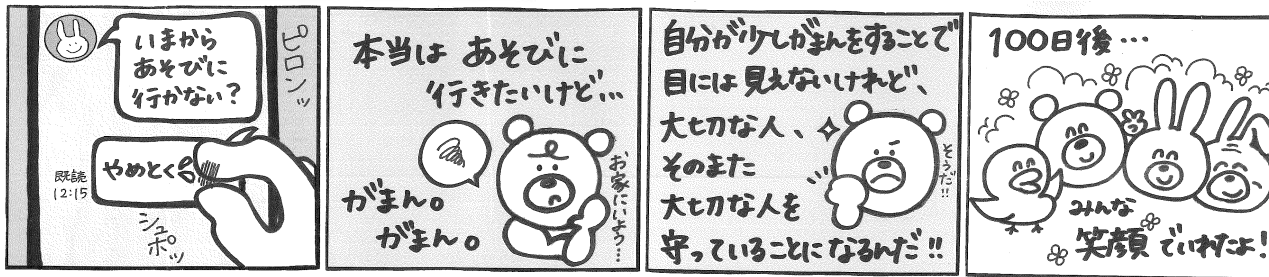 ピロンッ
いまから
あそびに
行かない?
やめとく
既読
12:15
シュポッ
本当は あそびに
行きたいけど…
がまん。
がまん。
お家にいよう…
自分が少しがまんをすることで
目には見えないけれど、
大切な人、
そのまた
大切な人を
守っていることになるんだ!!
そうだ!!
100日後…
みんな
笑顔でいれたよ!